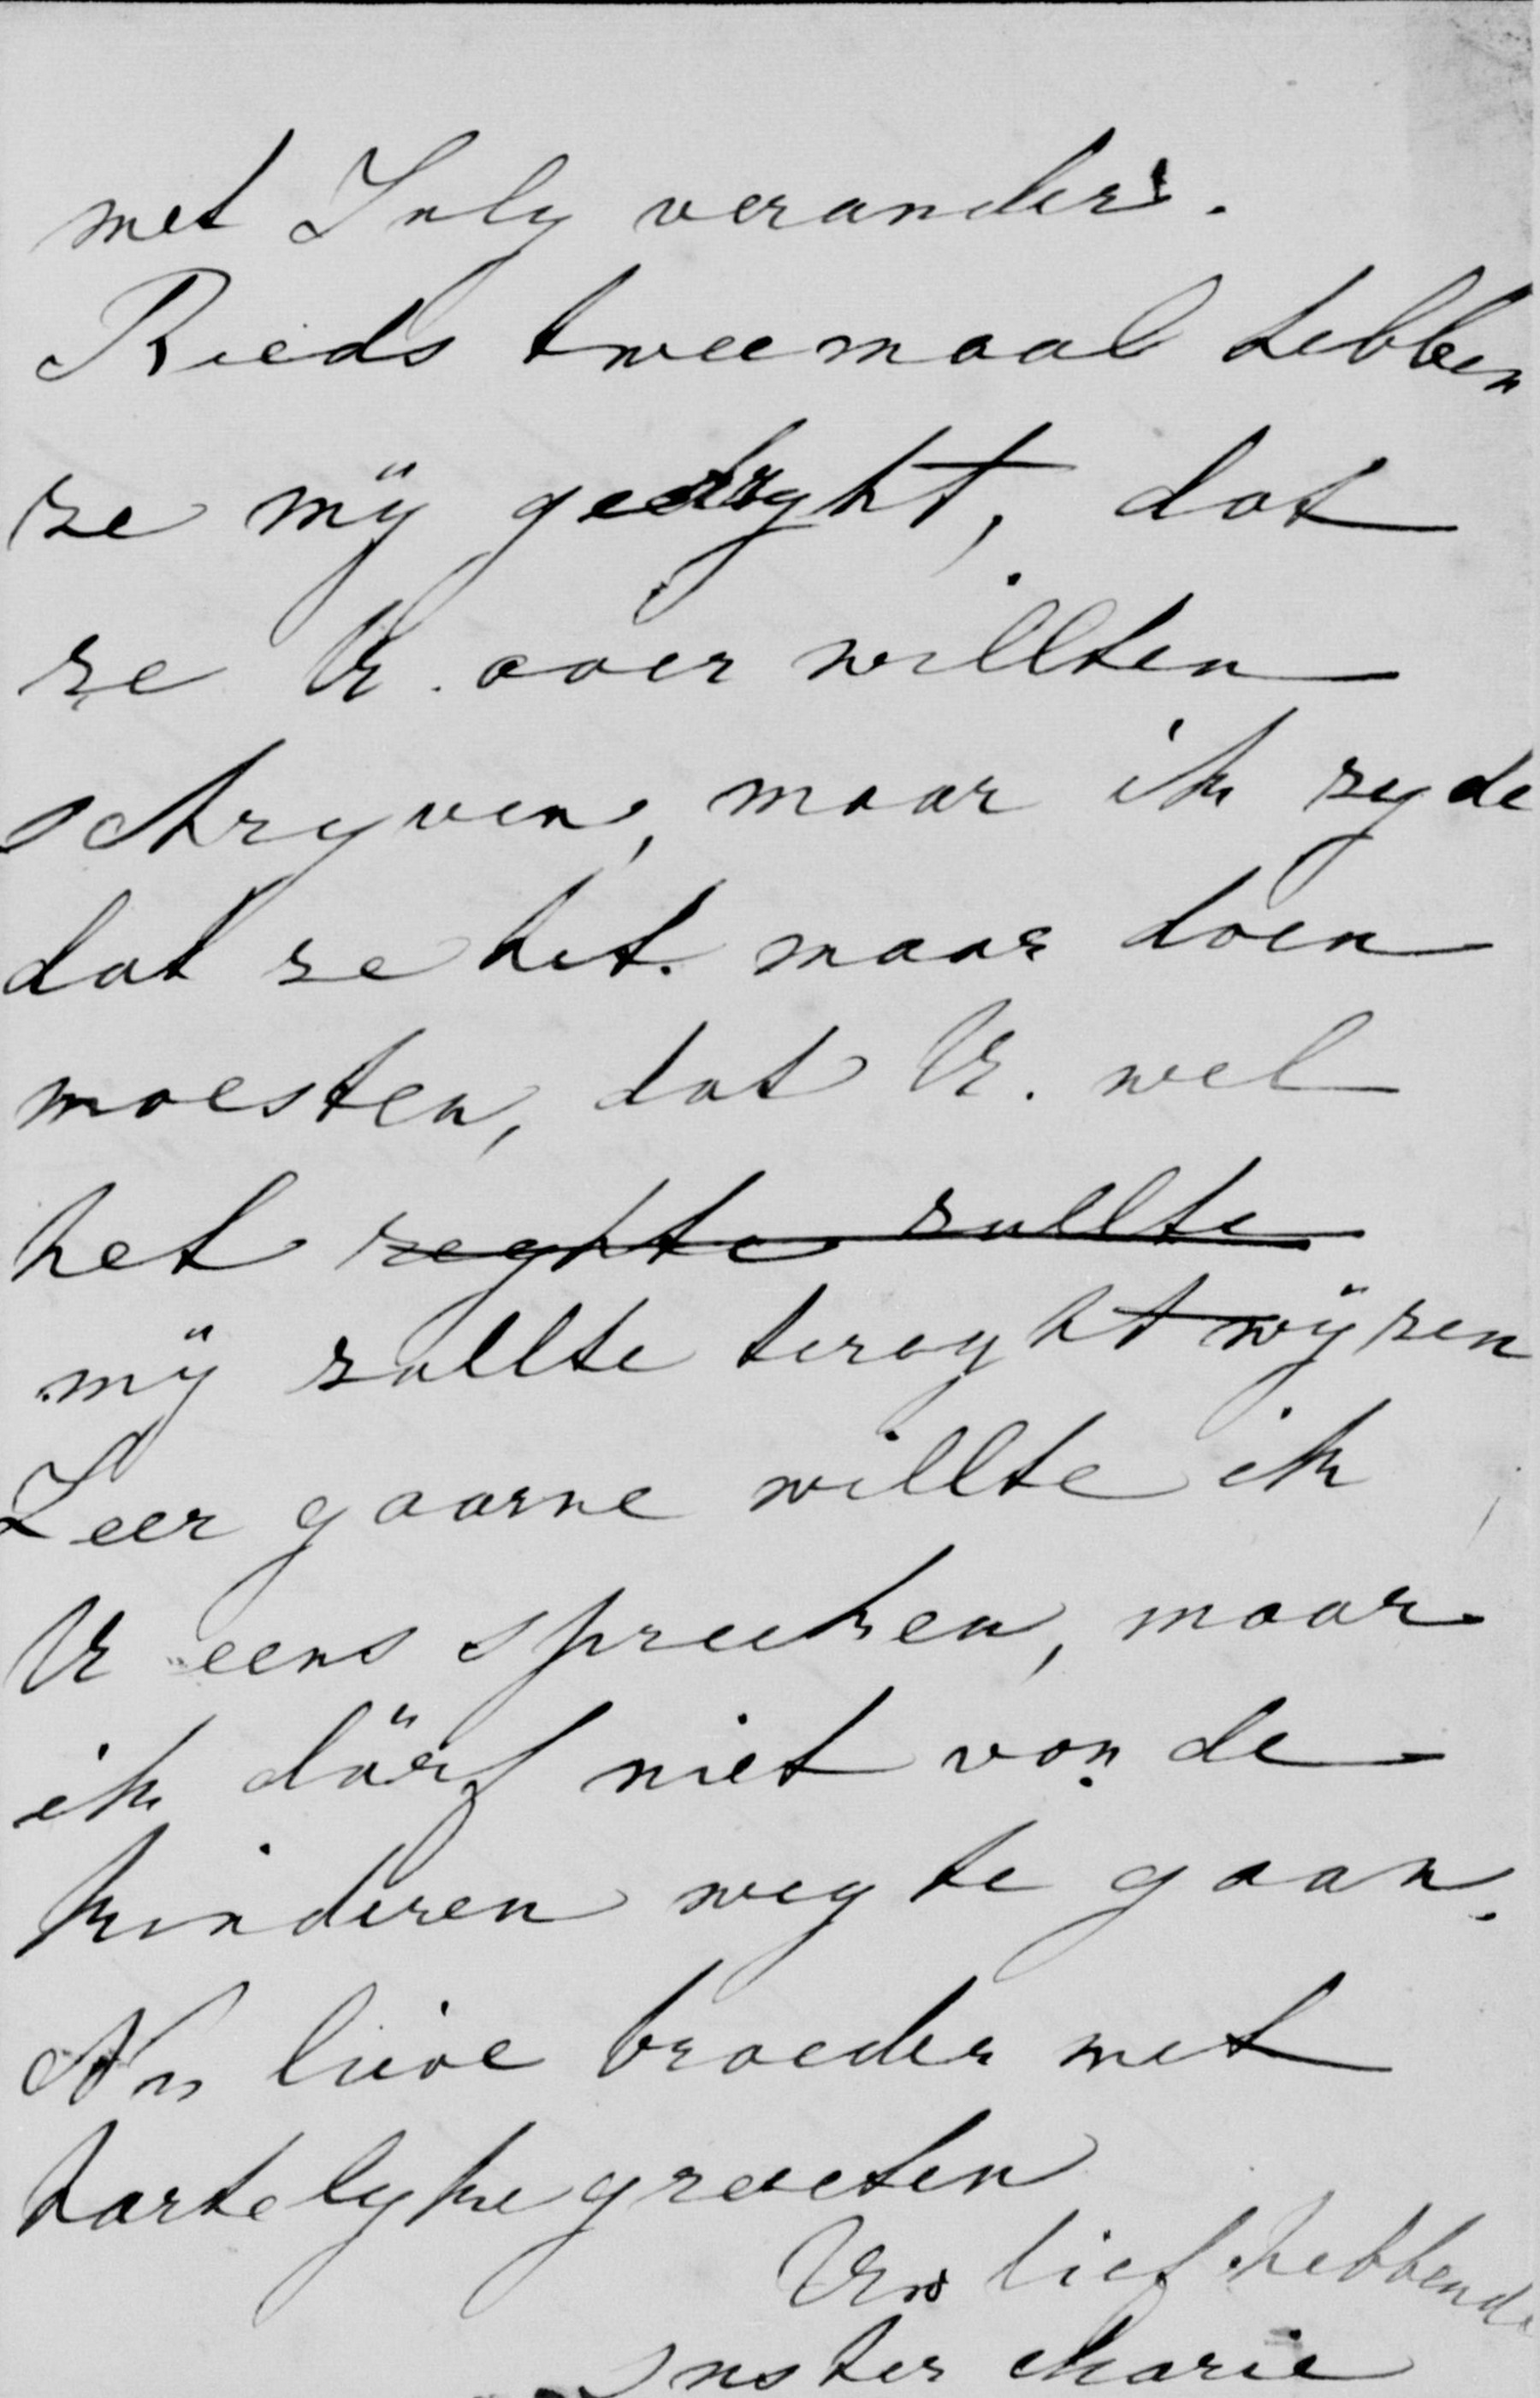 met July verander's.
Rieds tweemaal hebben
ze mÿ gedryght, dat
ze U. over willten
schryven, maar ik zyde
dat ze het maar doen
moesten, dat U. wel
het reghte sullte
mÿ sullte teraght wÿsen
Zeer gaarne willte ik
U eens spreeken, maar
ik dürf niet van de
kinderen weg te gaan.
Nu lieve broeder met
hartelyke groeten
Uw liefhebbende
suster Marie